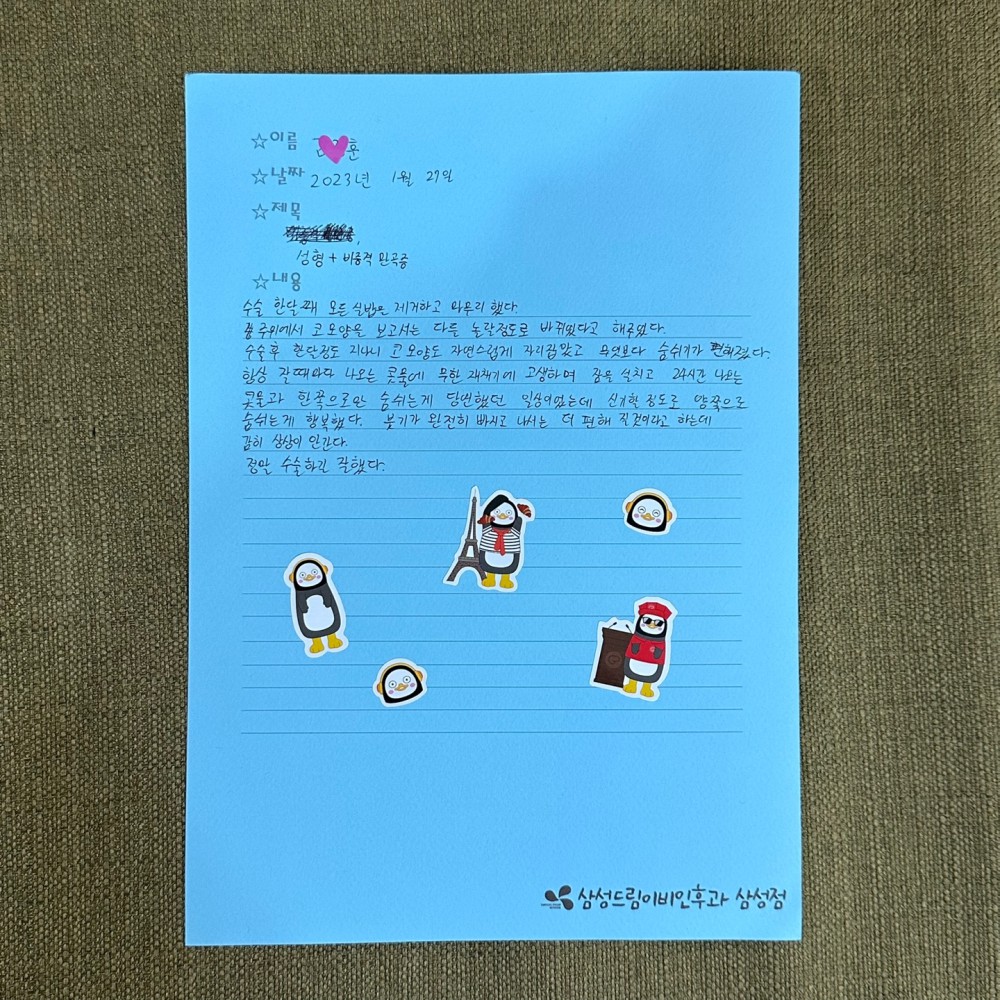 ☆이름 훈
☆날짜 2023년 1월 27일
☆제목
성형 + 비중격 만곡증
☆내용
수술 한달째 모든 실밥을 제거하고 마무리 했다.
주위에서 코 모양을 보고서는 다들 놀랄정도로 바뀌었다고 해주었다.
수술후 한달정도 지나니 코 모양도 자연스럽게 자리잡았고 무엇보다 숨쉬기가 편해졌다.
항상 잘때마다 나오는 콧물에 무한 재채기에 고생하며 잠을 설치고 24시간 나오는
콧물과 한쪽으로만 숨쉬는게 당연했던 일상이었는데 신기할 정도로 양쪽으로
숨쉬는게 행복했다. 붓기가 완전히 빠지고 나서는 더 편해 질것이라고 하는데
감히 상상이 안간다.
정말 수술하길 잘했다.
삼성드림이비인후과 삼성점